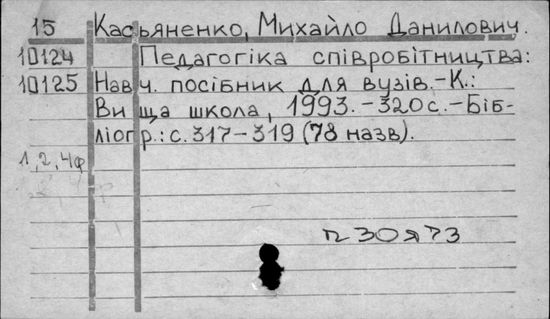 15 Касьяненко, Михайло Данилович.
10124 Педагогіка співробітництва:
10125 Навч. посібник для вузів.-К.:
Вища школа, 1993.-320с.-Біб-
ліогр.: с. 317-319 (78 назв).
1,2,4ф
п30я73